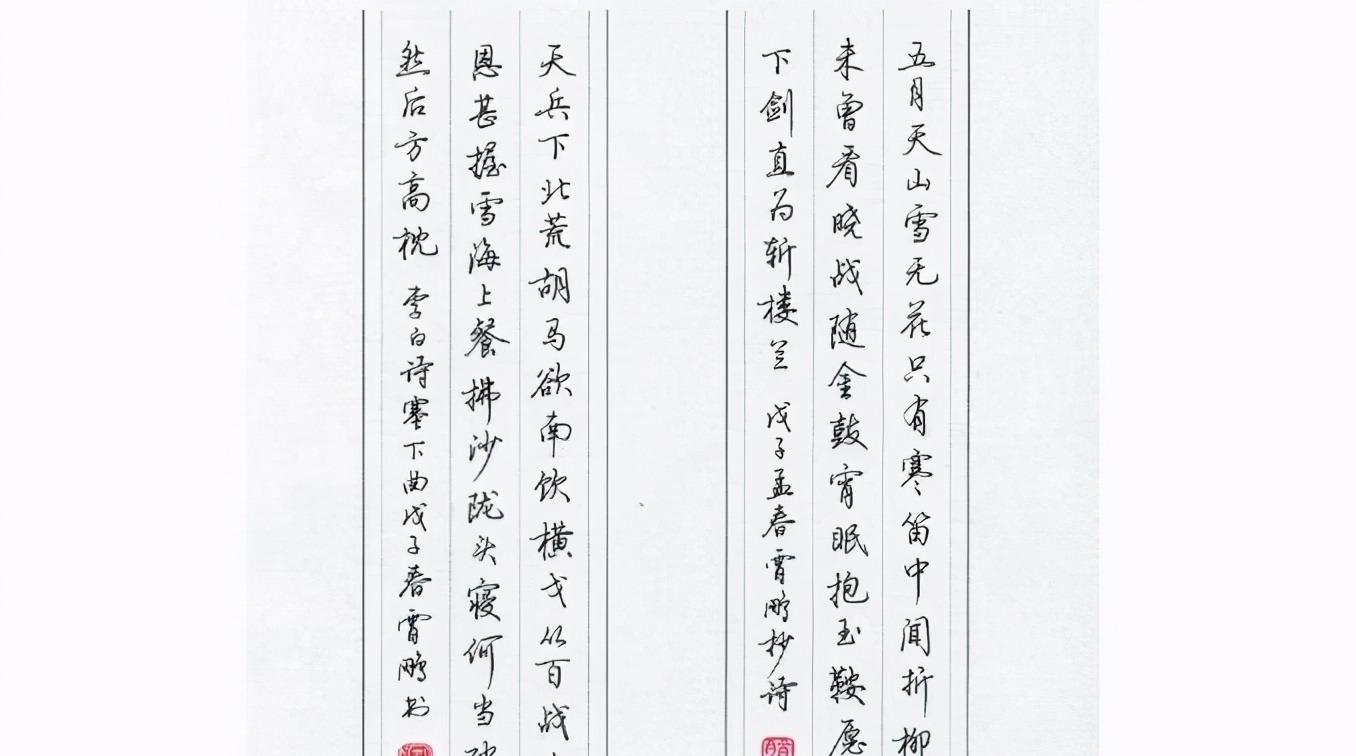 五月天山雪无花只有寒笛中闻折柳
未曾看晓战随金鼓宵眠抱玉鞍愿
下剑直为斩楼兰 戊子孟春霄鹏抄诗
天兵下北荒胡马欲南饮横戈从百战
恩甚握雪海上餐拂沙陇头寝何当
然后方高枕 李白诗塞下曲戊子春霄鹏书